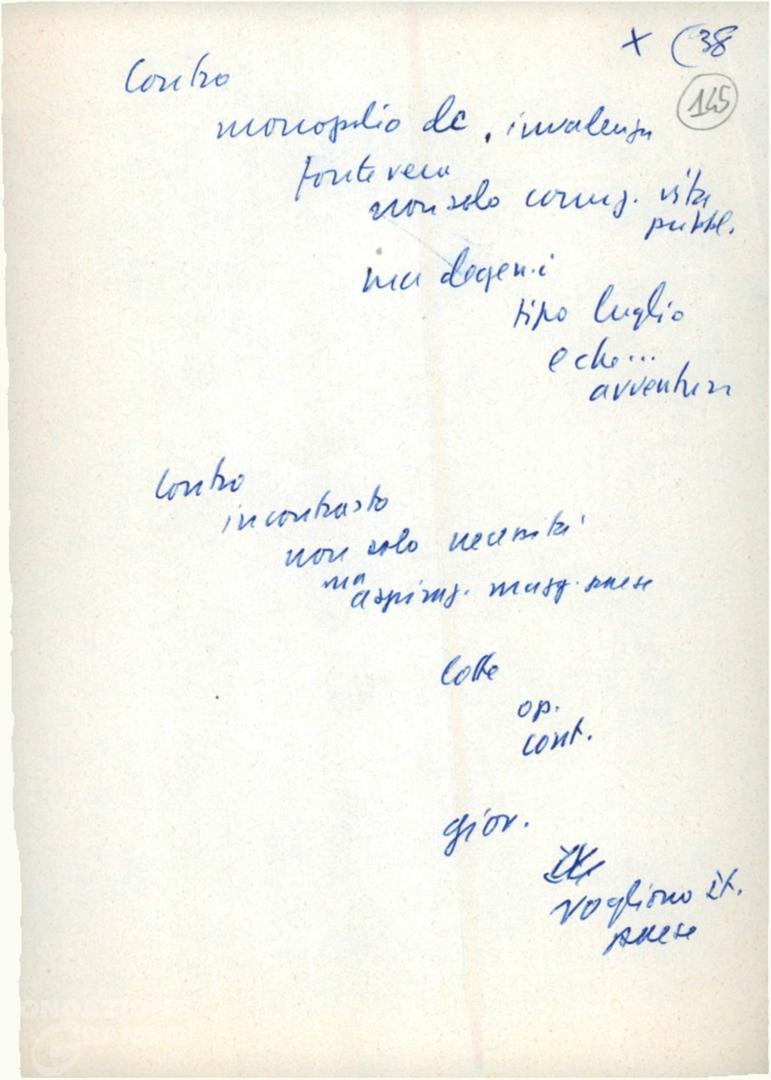 x (38
145
Contro
monopolio dc, invadenza
fonte vera
non solo corruz. vita
pubbl.
ma degen.i
tipo luglio
e che...
avventure
Contro
in contrasto
non solo necessità
ma
aspiraz. magg. paese
lotte
op.
cont.
giov.
vogliono it.
paese
FONDAZIONE
GRAMSCI